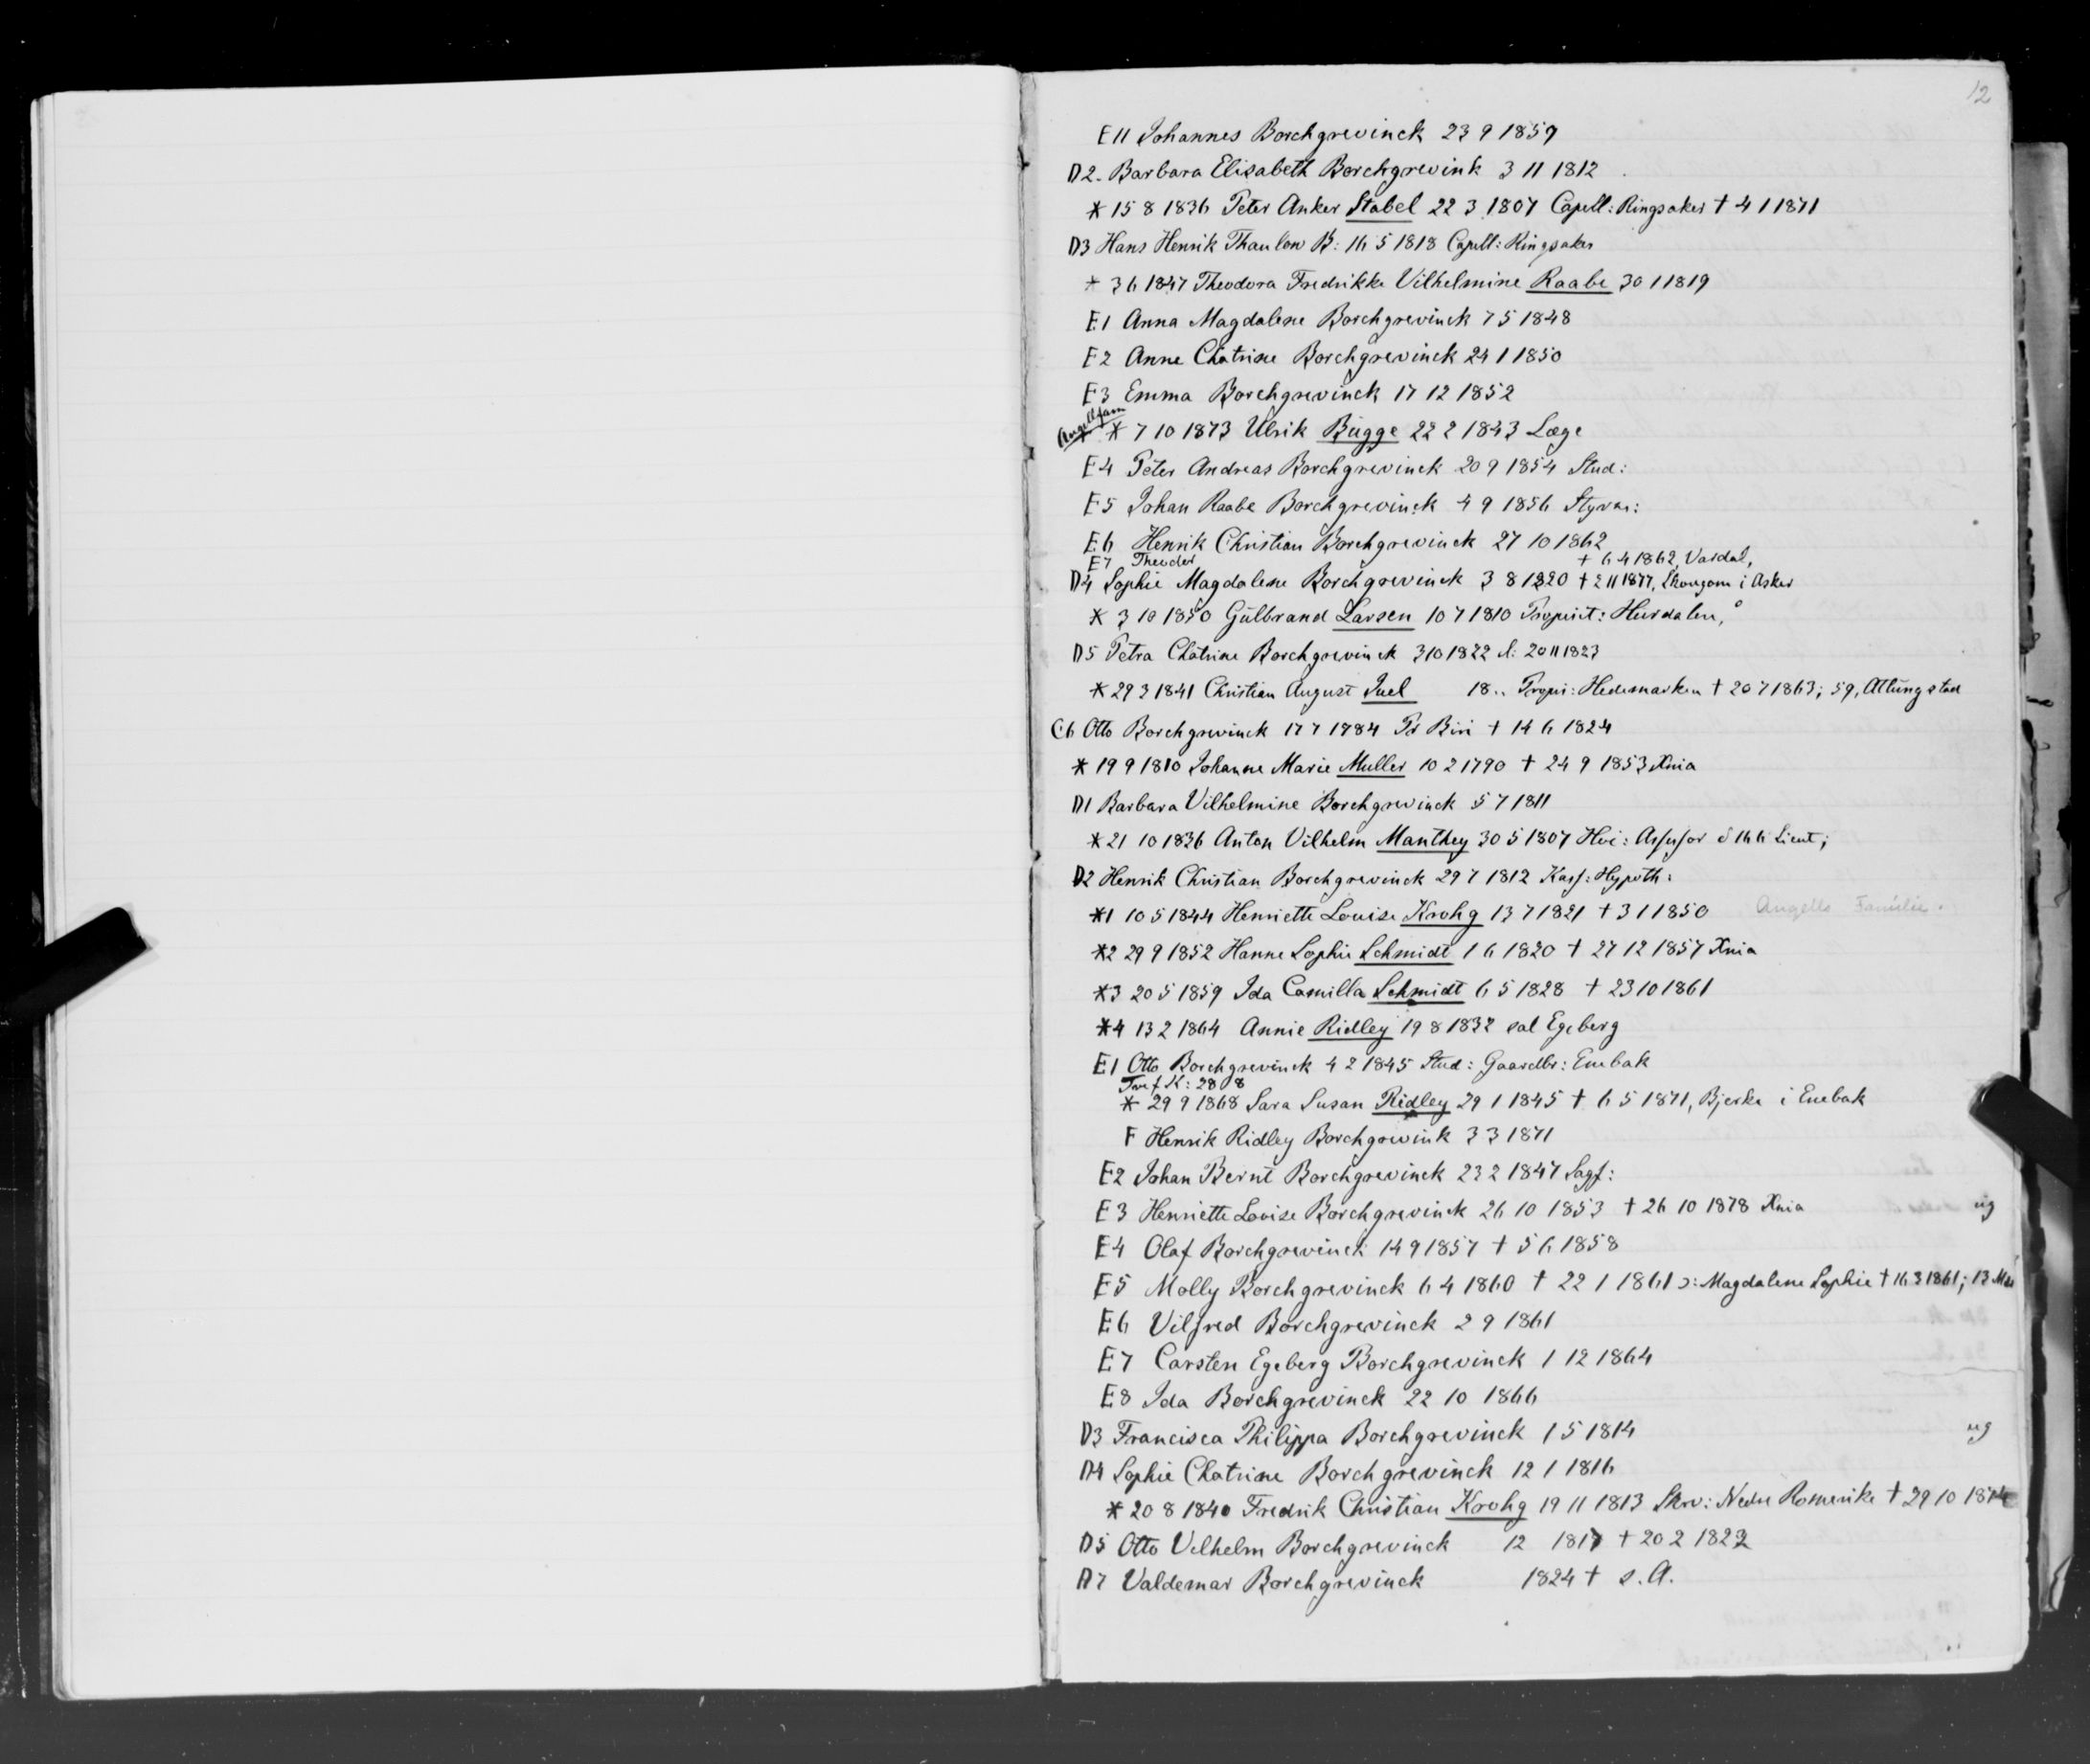 12
E11 Johannes Borchgrevinck 23 9 1859
D2. Barbara Elisabeth Borchgrevink 3 11 1812
* 15 8 1836 Peter Anker Stabel 22 3 1807 Capell: Ringsaker † 4 1 1871
D3 Hans Henrik Thaulow B: 16 5 1818 Capell: Ringsaker
* 3 6 1847 Theodora Fredrikke Vilhelmine Raabe 30 1 1819
E1 Anna Magdalene Borchgrevinck 7 5 1848
E2 Anne Chatrine Borchgrevinck 24 1 1850
E3 Emma Borchgrevinck 17 12 1852
Angell fam
* * 7 10 1873 Ulrik Bugge 22 2 1843 Læge
E4 Peter Andreas Borchgrevinck 20 9 1854 Stud:
E5 Johan Raabe Borchgrevinck 4 9 1856 Styrm:
E6 Henrik Christian Borchgrevinck 27 10 1862
E7 Theodor † 6 4 1862, Vardal,
D4 Sophie Magdalene Borchgrevinck 3 8 1820 † 2 11 1877, i Asker
* 3 10 1850 Gulbrand Larsen 10 7 1810 Propriet: Hurdalen,
D5 Petra Chatrine Borchgrevinck 3 10 1822 d: 20 11 1823
* 29 3 1841 Christian August Juel 18.. Propri: Hedemarken † 20 7 1863; 59, Attungstad
C6 Otto Borchgrevinck 17 7 1784 Pr Biri † 14 6 1824
* 19 9 1810 Johanne Marie Muller 10 2 1790 † 24 9 1853 Xnia
D1 Barbara Vilhelmine Borchgrevinck 5 7 1811
* 21 10 1836 Anton Vilhelm Manthey 30 5 1807 Hoi: Assessor Lieut;
D2 Henrik Christian Borchgrevinck 29 7 1812 Kass: Hypoth:
*1 10 5 1844 Henriette Louise Krohg 13 7 1821 † 3 1 1850 Angells Familie.
*2 29 9 1852 Hanne Sophie Schmidt 1 6 1820 † 27 12 1857 Xnia
*3 20 5 1859 Ida Camilla Schmidt 6 5 1828 † 23 10 1861
*4 13 2 1864 Annie Ridley 19 8 1832 sal Egeberg
E1 Otto Borchgrevinck 4 2 1845 Stud: Gaardbr: Enebak
Tref K: 28 8
* 29 9 1868 Sara Susan Ridley 29 1 1845 † 6 5 1871, Bjerke i Enebak
F Henrik Ridley Borchgrevink 3 3 1871
E2 Johan Bernt Borchgrevinck 23 2 1847 Sagf:
E3 Henriette Louise Borchgrevinck 26 10 1853 † 26 10 1878 Xnia ug
E4 Olaf Borchgrevinck 14 9 1857 † 5 6 1858
E5 Molly Borchgrevinck 6 4 1860 † 22 1 1861 ɔ: Magdalene Sophie † 16 3 1861; 13 Mdr
E6 Vilfred Borchgrevinck 2 9 1861
E7 Carsten Egeberg Borchgrevinck 1 12 1864
E8 Ida Borchgrevinck 22 10 1866
D3 Francisca Philippa Borchgrevinck 1 5 1814 ug
D4 Sophie Chatrine Borchgrevinck 12 1 1816
* 20 8 1840 Fredrik Christian Krohg 19 11 1813 Skrv: Nedre Romerike † 29 10 1874
D5 Otto Vilhelm Borchgrevinck 12 1817 † 20 2 1822
D7 Valdemar Borchgrevinck 1824 † s. A.